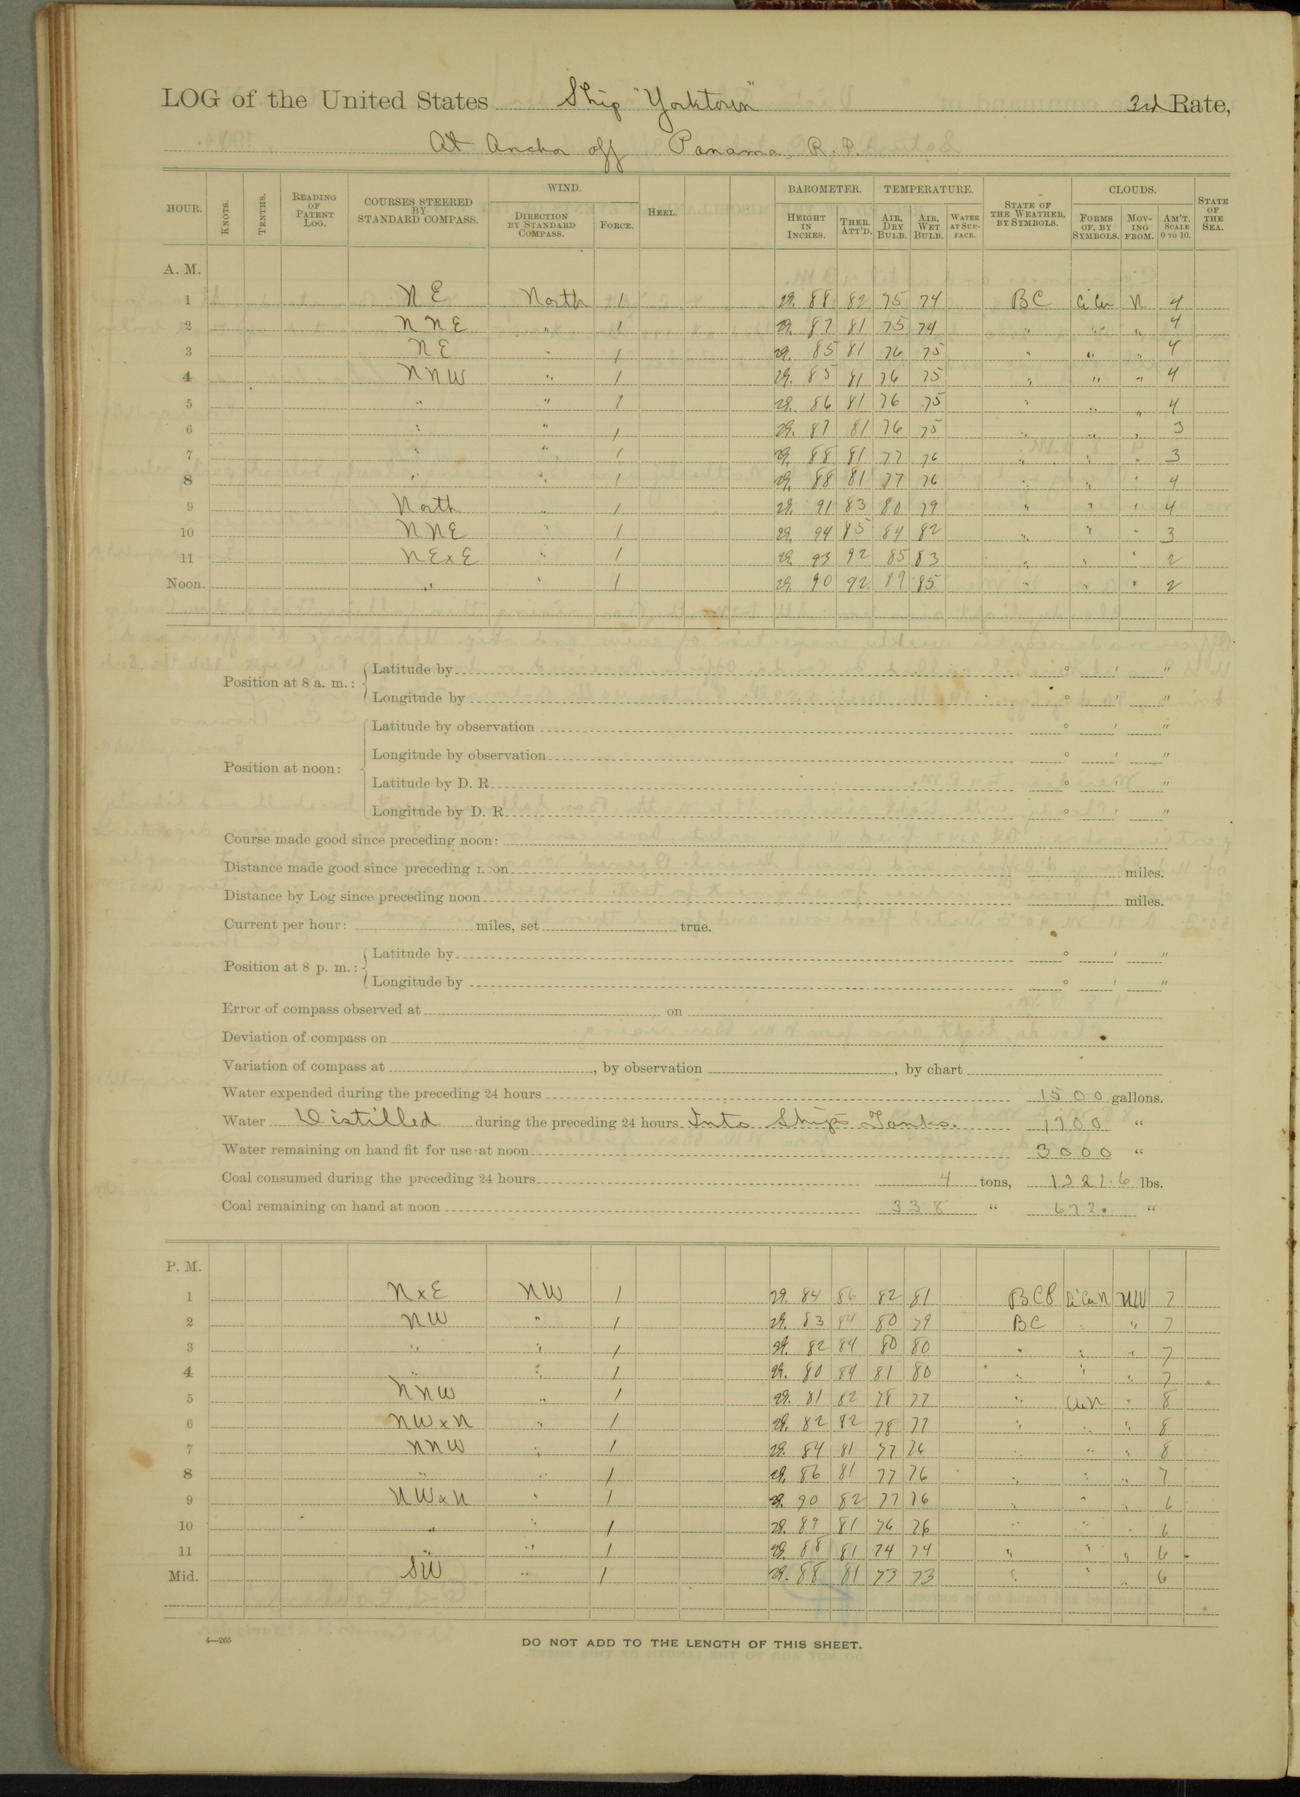 LOG of the United States Ship "Yorktown" 3rd Rate,
At Anchor off Panama, R. P.
HOUR. KNOTS. TENTHS. READING OF PATENT LOG. COURSES STEERED BY STANDARD COMPASS. WIND. DIRECTION BY STANDARD COMPASS. FORCE. HEEL. BAROMETER. HEIGHT IN INCHES. THER. ATT'D. TEMPERATURE. AIR, DRY BULB. AIR, WET BULB. WATER AT SURFACE. STATE OF THE WEATHER, BY SYMBOLS. CLOUDS. FORMS OF, BY SYMBOLS. MOVING FROM. AM'T. SCALE 0 TO 10. STATE OF THE SEA.
A. M.
1 NE North 1 29. 88 82 75 74 BC Ci Cu N 4
2 NNE " 1 29. 87 81 75 74 " " " 4
3 NE " 1 29. 85 81 76 75 " " " 4
4 NNW " 1 29. 85 81 76 75 " " " 4
5 " " 1 29. 86 81 76 75 " " " 4
6 " " 1 29. 87 81 76 75 " " " 3
7 " " 1 29. 88 81 77 76 " " " 3
8 " " 1 29. 88 81 77 76 " " " 4
9 North " 1 29. 91 83 80 79 " " " 4
10 NNE " 1 29. 94 85 84 82 " " " 3
11 NExE " 1 29. 93 92 85 83 " " " 2
Noon. " " 1 29. 90 92 89 85 " " " 2
Position at 8 a. m.: Latitude by ° ′ ″
Longitude by ° ′ ″
Position at noon: Latitude by observation ° ′ ″
Longitude by observation ° ′ ″
Latitude by D. R. ° ′ ″
Longitude by D. R. ° ′ ″
Course made good since preceding noon:
Distance made good since preceding noon miles.
Distance by Log since preceding noon miles.
Current per hour: miles, set true.
Position at 8 p. m.: Latitude by ° ′ ″
Longitude by ° ′ ″
Error of compass observed at on
Deviation of compass on
Variation of compass at , by observation , by chart
Water expended during the preceding 24 hours 1500 gallons.
Water Distilled during the preceding 24 hours Into Ships Tanks. 1700 "
Water remaining on hand fit for use at noon 3000 "
Coal consumed during the preceding 24 hours 4 tons, 1321.6 lbs.
Coal remaining on hand at noon 338 " 672. "
P. M.
1 NxE NW 1 29. 84 86 82 81 Ci Cu N NW 7
2 NW " 1 29. 83 84 80 79 BC " " 7
3 " " 1 29. 82 84 80 80 " " " 7
4 " " 1 29. 80 84 81 80 " " " 7
5 NNW " 1 29. 81 82 78 77 " CuN " 8
6 NWxN " 1 29. 82 82 78 77 " " " 8
7 NNW " 1 29. 84 81 77 76 " " " 8
8 " " 1 29. 86 81 77 76 " " " 7
9 NWxN " 1 29. 90 82 77 76 " " " 6
10 " " 1 29. 89 81 76 76 " " " 6
11 " " 1 29. 88 81 74 74 " " " 6
Mid. SW " 1 29. 88 81 73 73 " " " 6
4—265
DO NOT ADD TO THE LENGTH OF THIS SHEET.